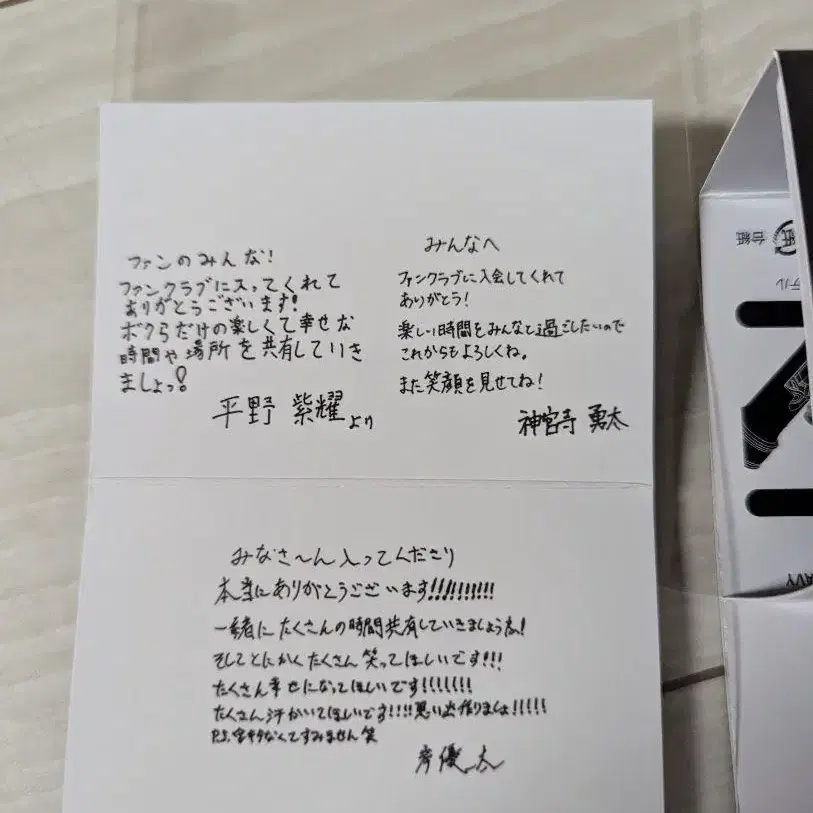 ファンのみんな!
ファンクラブに入ってくれて
ありがとうございます!
ボクらだけの楽しくて幸せな
時間や場所を共有していき
ましょっ!
平野 紫耀より
みんなへ
ファンクラブに入会してくれて
ありがとう!
楽しい時間をみんなと過ごしたいので
これからもよろしくね。
また笑顔を見せてね!
神宮寺 勇太
みなさ〜ん入ってくださり
本当にありがとうございます!!!!!!!!!!
一緒にたくさんの時間共有していきましょうね!
そしてとにかくたくさん笑ってほしいです!!!
たくさん幸せになってほしいです!!!!!!!
たくさん汗かいてほしいです!!!!思い出作りましょ!!!!!
P.S.字キタなくてすみません笑
岸優太
台紙
紙